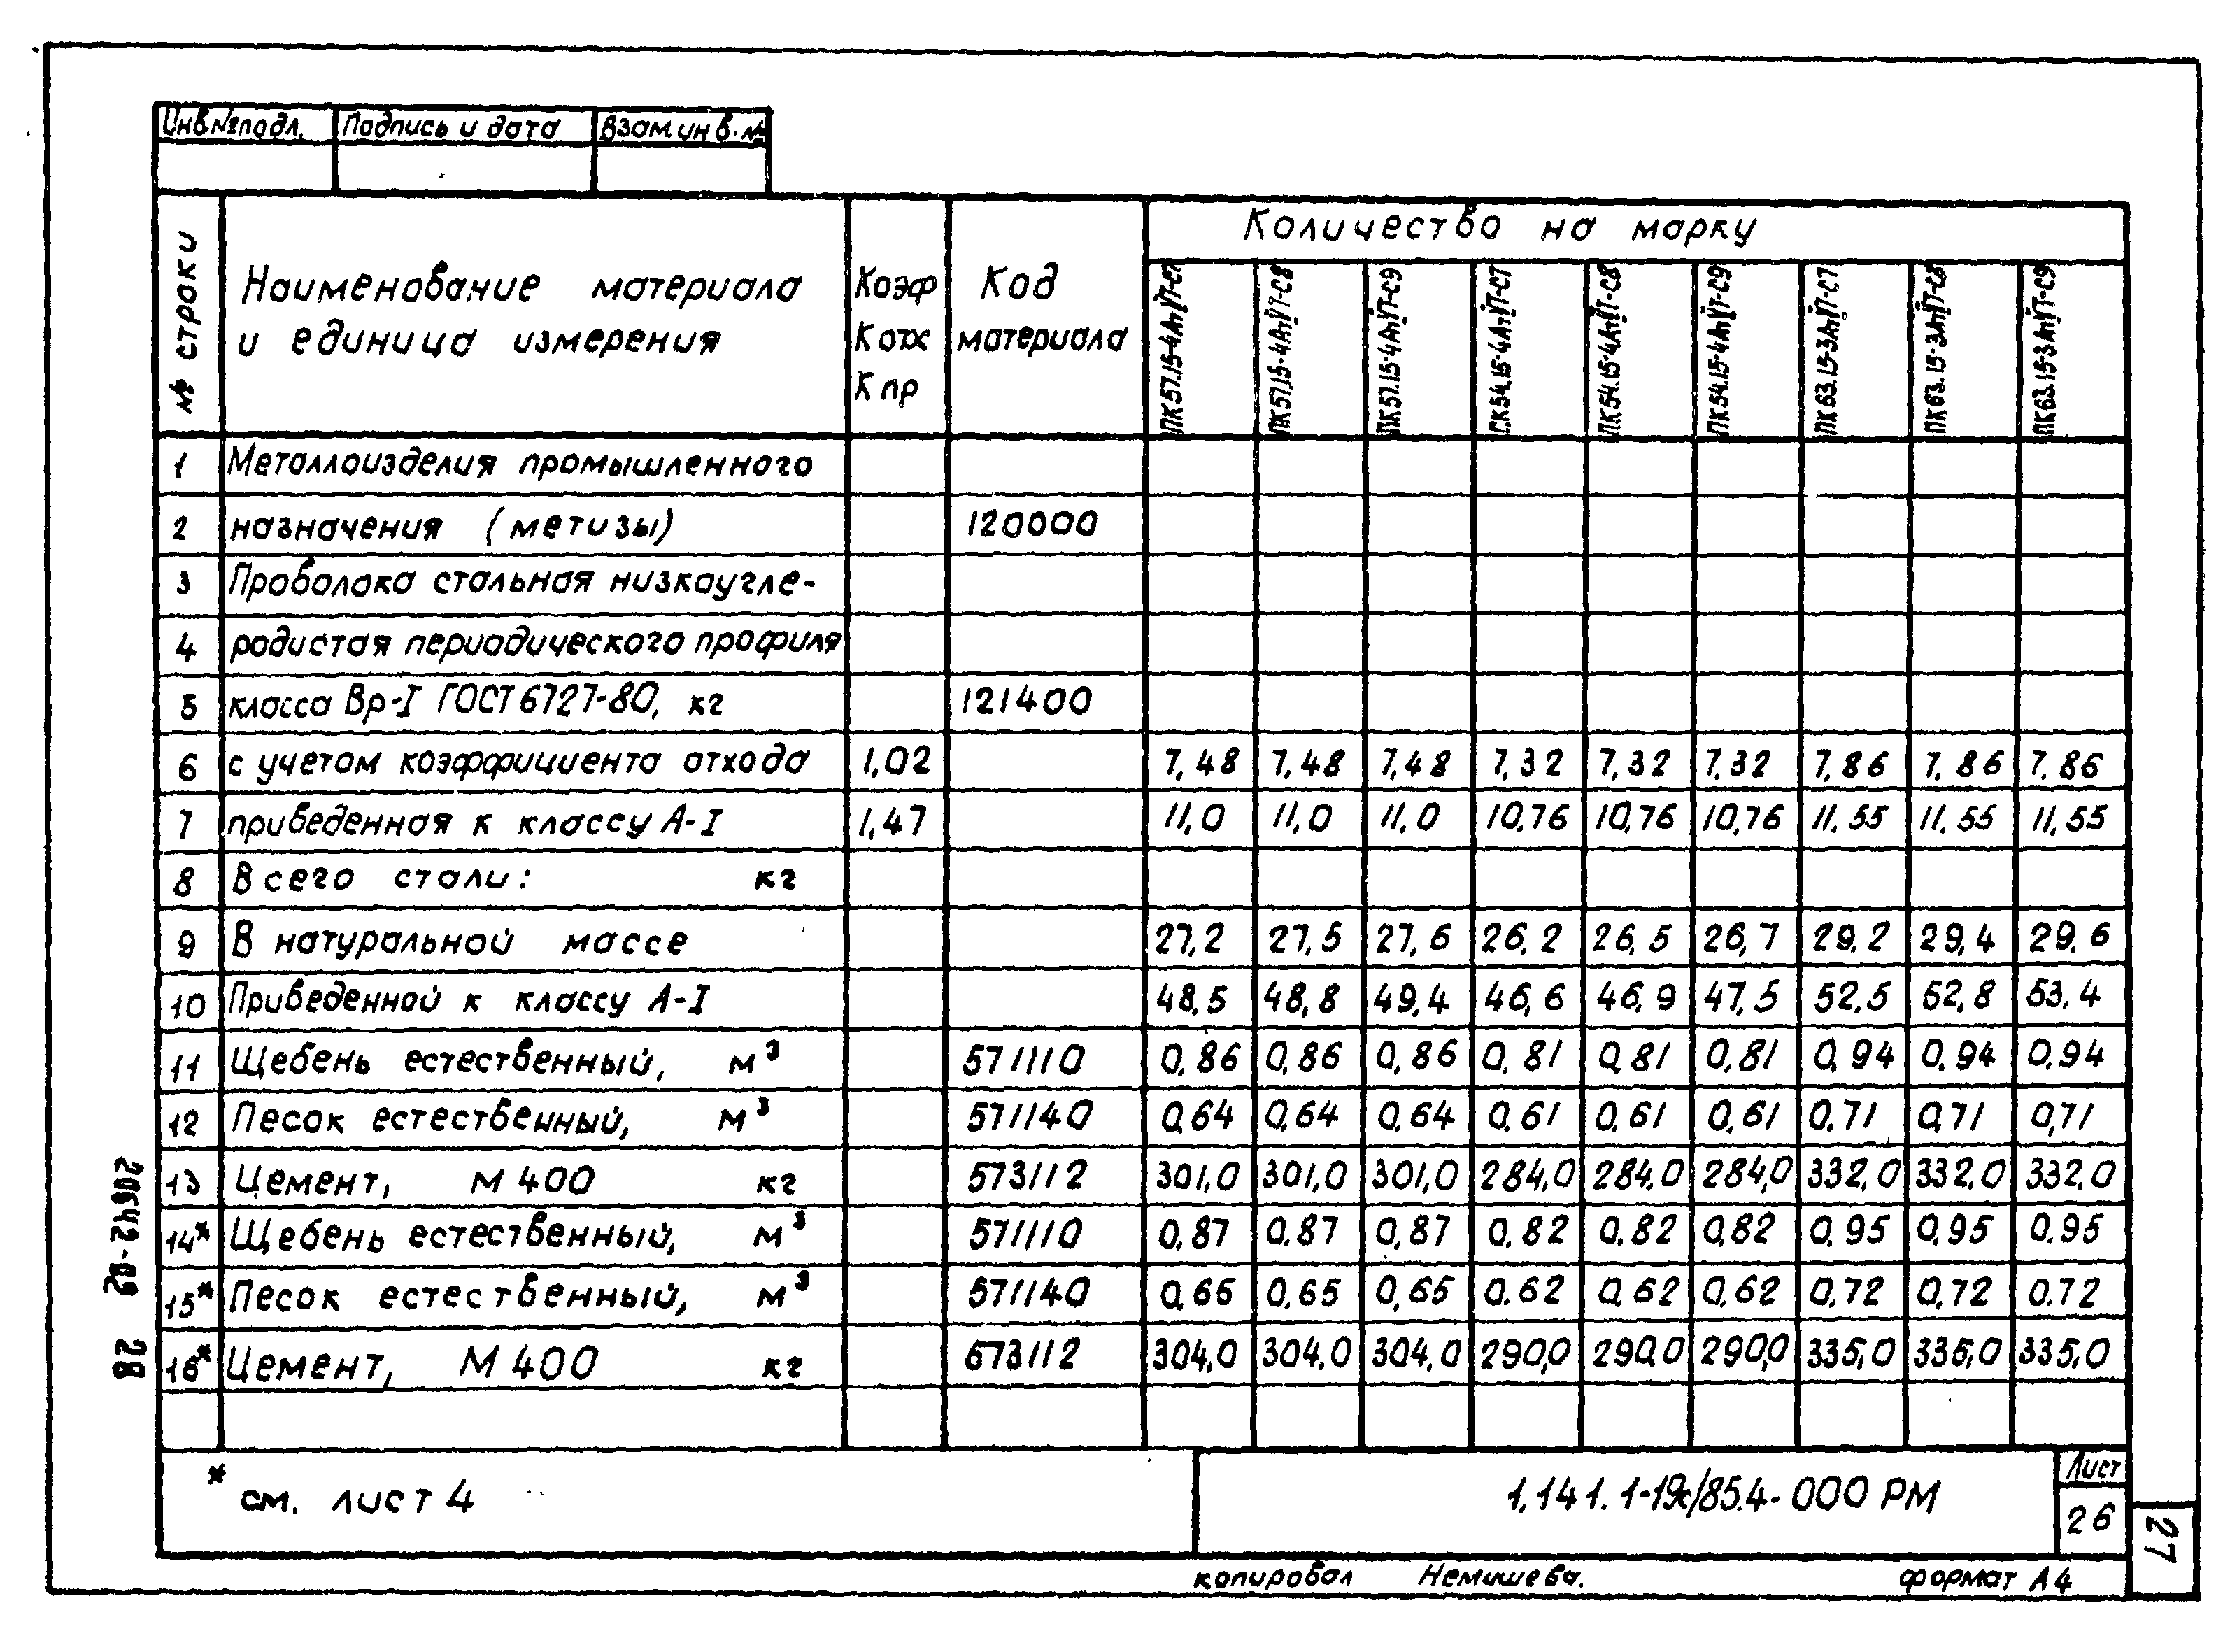 Инв.№подл. Подпись и дата Взам.инв.№
№ строки
Наименование материала
и единица измерения
Коэф
Котх
Кпр
Код
материала
Количество на марку
ПК57.15-4АтVТ-с7 ПК57.15-4АтVТ-с8 ПК57.15-4АтVТ-с9 ПК54.15-4АтVТ-с7 ПК54.15-4АтVТ-с8 ПК54.15-4АтVТ-с9 ПК63.15-3АтVТ-с7 ПК63.15-3АтVТ-с8 ПК63.15-3АтVТ-с9
1 Металлоизделия промышленного
2 назначения (метизы) 120000
3 Проволока стальная низкоугле-
4 родистая периодического профиля
5 класса Вр-I ГОСТ 6727-80, кг 121400
6 с учетом коэффициента отхода 1,02 7,48 7,48 7,48 7,32 7,32 7,32 7,86 7,86 7,86
7 приведенная к классу А-I 1,47 11,0 11,0 11,0 10,76 10,76 10,76 11,55 11,55 11,55
8 Всего стали: кг
9 В натуральной массе 27,2 27,5 27,6 26,2 26,5 26,7 29,2 29,4 29,6
10 Приведенной к классу А-I 48,5 48,8 49,4 46,6 46,9 47,5 52,5 52,8 53,4
11 Щебень естественный, м³ 571110 0,86 0,86 0,86 0,81 0,81 0,81 0,94 0,94 0,94
12 Песок естественный, м³ 571140 0,64 0,64 0,64 0,61 0,61 0,61 0,71 0,71 0,71
13 Цемент, М400 кг 573112 301,0 301,0 301,0 284,0 284,0 284,0 332,0 332,0 332,0
14* Щебень естественный, м³ 571110 0,87 0,87 0,87 0,82 0,82 0,82 0,95 0,95 0.95
15* Песок естественный, м³ 571140 0,65 0,65 0,65 0.62 0,62 0,62 0,72 0,72 0.72
16* Цемент, М400 кг 573112 304,0 304,0 304,0 290,0 290,0 290,0 335,0 335,0 335,0
* см. лист 4
1.141.1-19с/85.4-000 РМ
Лист
26
27
копировал Немишева. формат А4
28